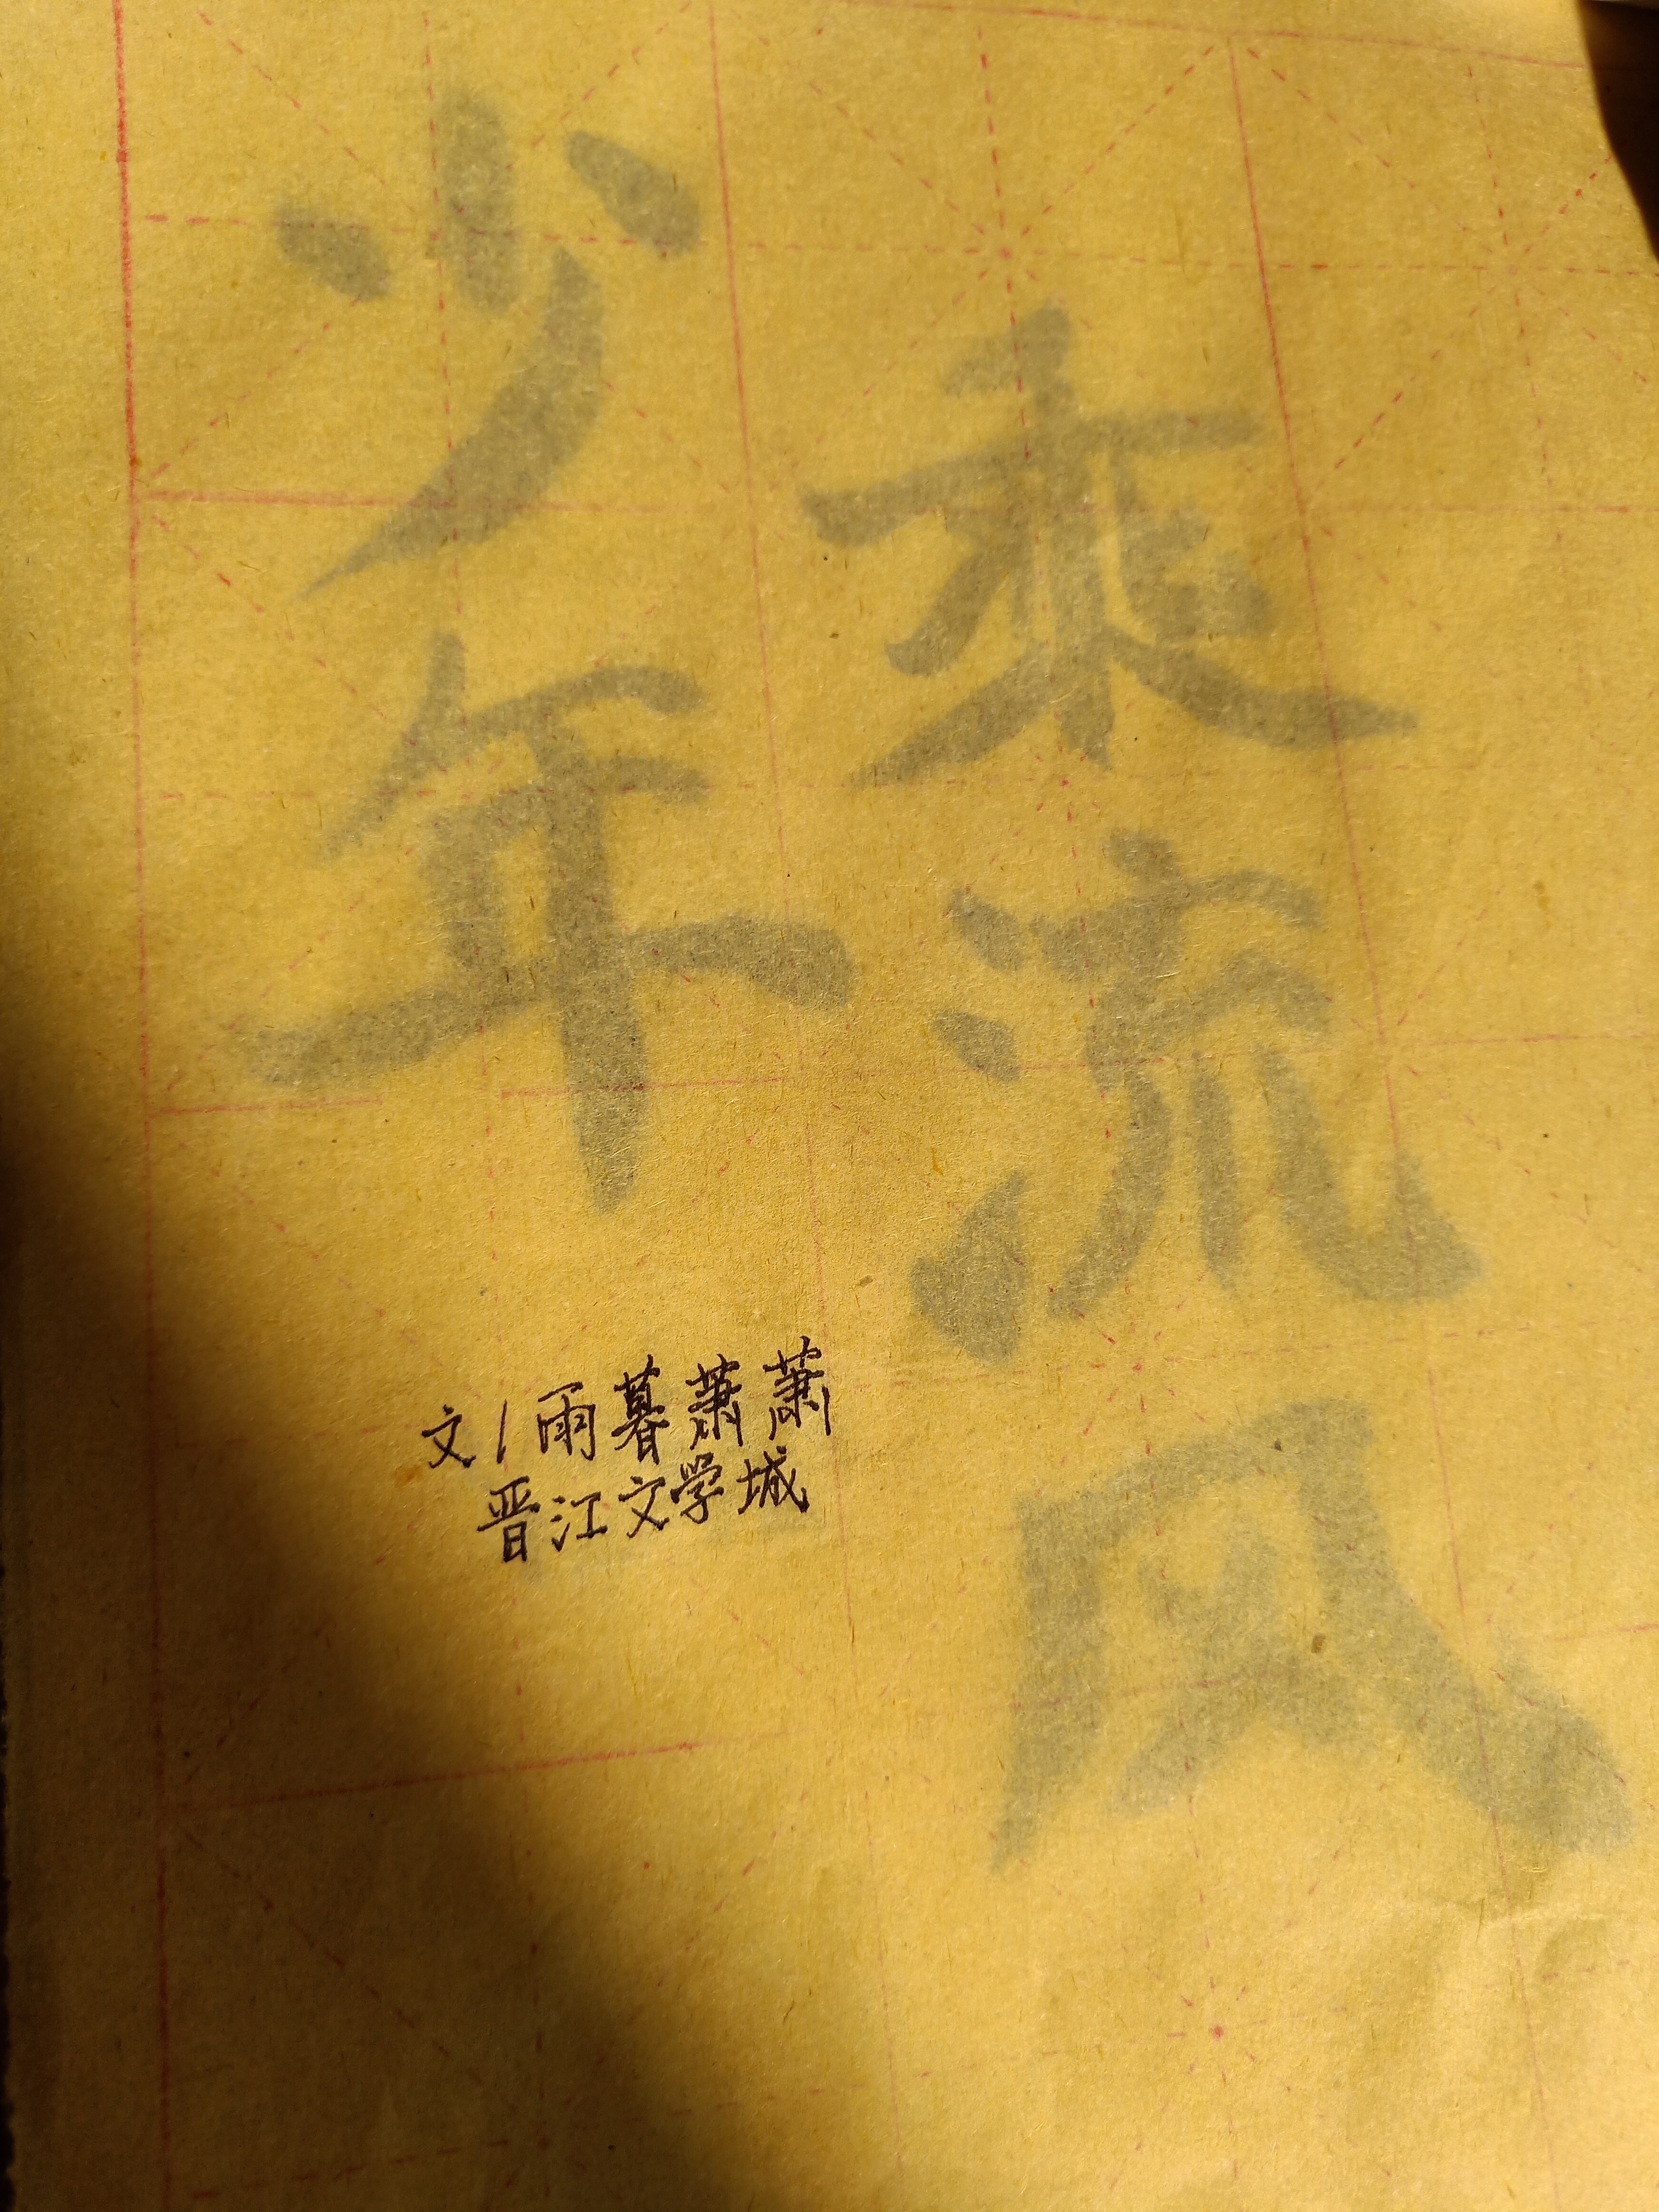 乘流风
少年
文/雨暮萧萧
晋江文学城